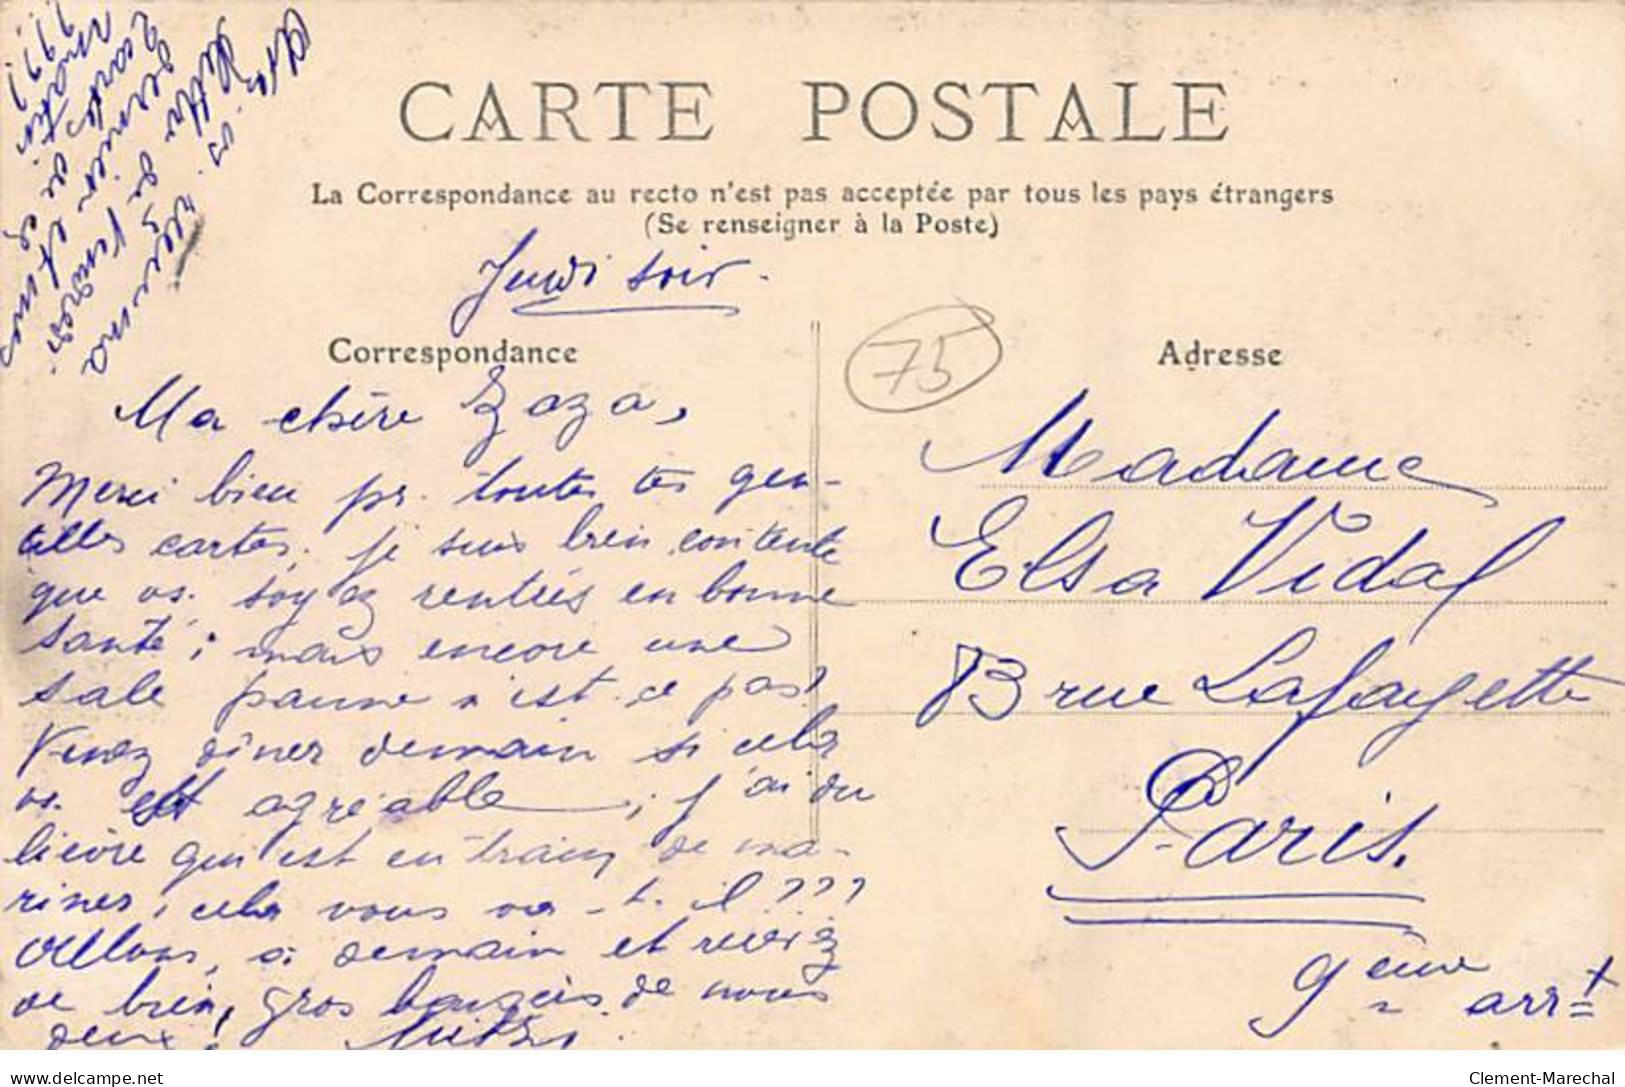 CARTE POSTALE
La Correspondance au recto n'est pas acceptée par tous les pays étrangers
(Se renseigner à la Poste)
Jeudi soir.
Correspondance
Ma chère Zaza,
Merci bien pr. toutes tes gen-
tilles cartes. je suis bien contente
que vs. soyez rentrés en bonne
santé ; mais encore une
sale panne n'est-ce pas?
Venez dîner demain si cela
vs. est agréable ; j'ai du
lièvre qui est en train de ma-
riner, cela vous va-t-il ???
Allons, à demain et recevez
de bien gros baisers de nous
deux.
75
Adresse
Madame
Elsa Vidal
83 rue Lafayette
Paris.
9eme arrt
Clement-Marechal